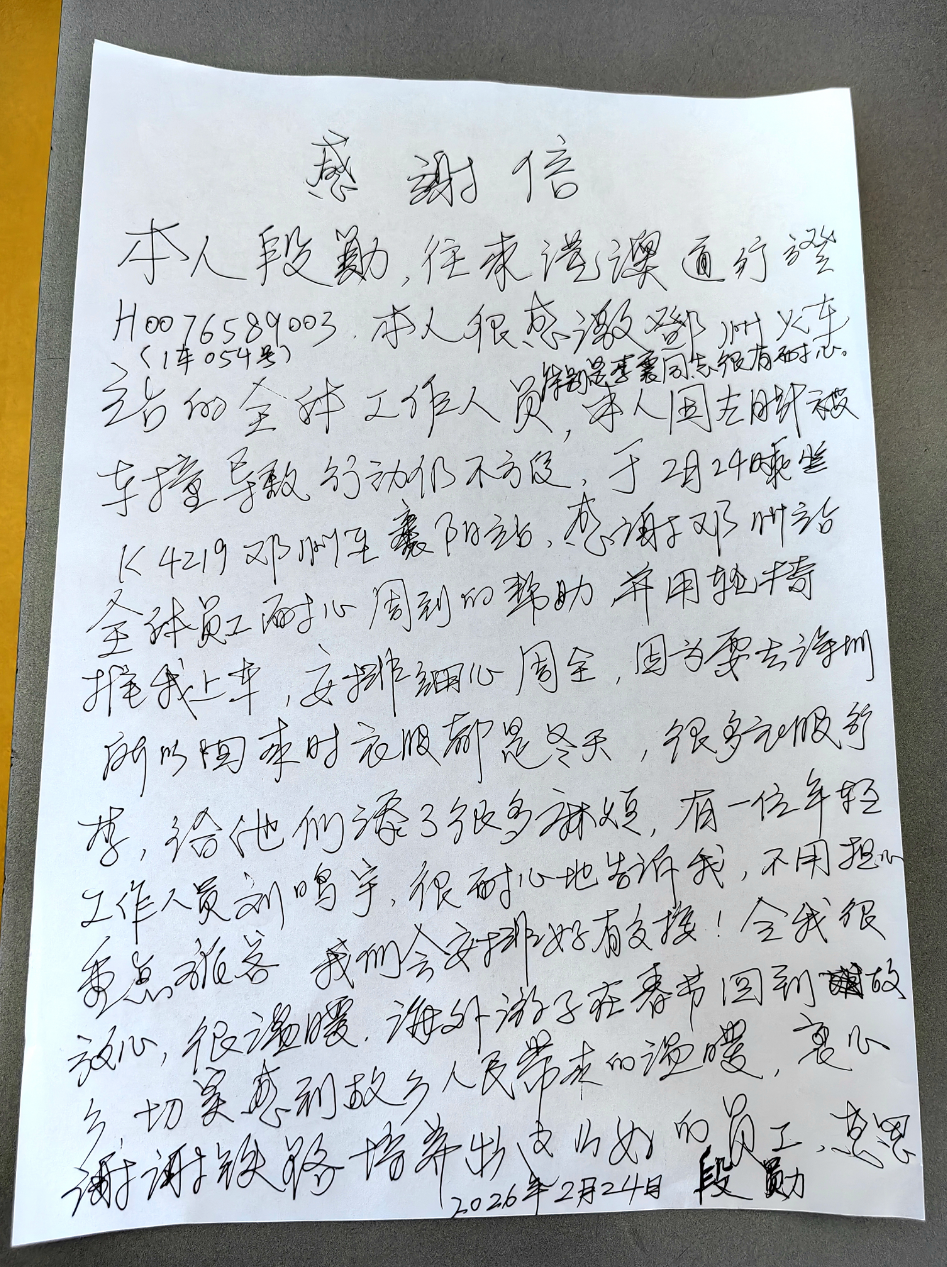 感謝信
本人段勛，往来港澳通行證
H0076589003. 本人很感激鄧州火车
（1车054号）
特别是李襄同志很有耐心。
站的全体工作人员，本人因左月叶被
车撞导致行动仍不方便，于2月24乘坐
K4219邓州至襄阳站，感谢邓州站
全体员工耐心周到的帮助并用轮椅
推我上车，安排细心周全，因为要去深圳
所以回来时衣服都是冬天，很多衣服行
李，给他们添了很多麻烦，有一位年轻
工作人员刘鸣宇，很耐心地告诉我，不用担心
重点旅客 我们会安排好有交接！令我很
放心，很温暖. 海外游子在春节回到故
乡，切实感到故乡人民带来的温暖，衷心
谢谢铁路培养出这么好的员工，感恩
2026年2月24日 段勛